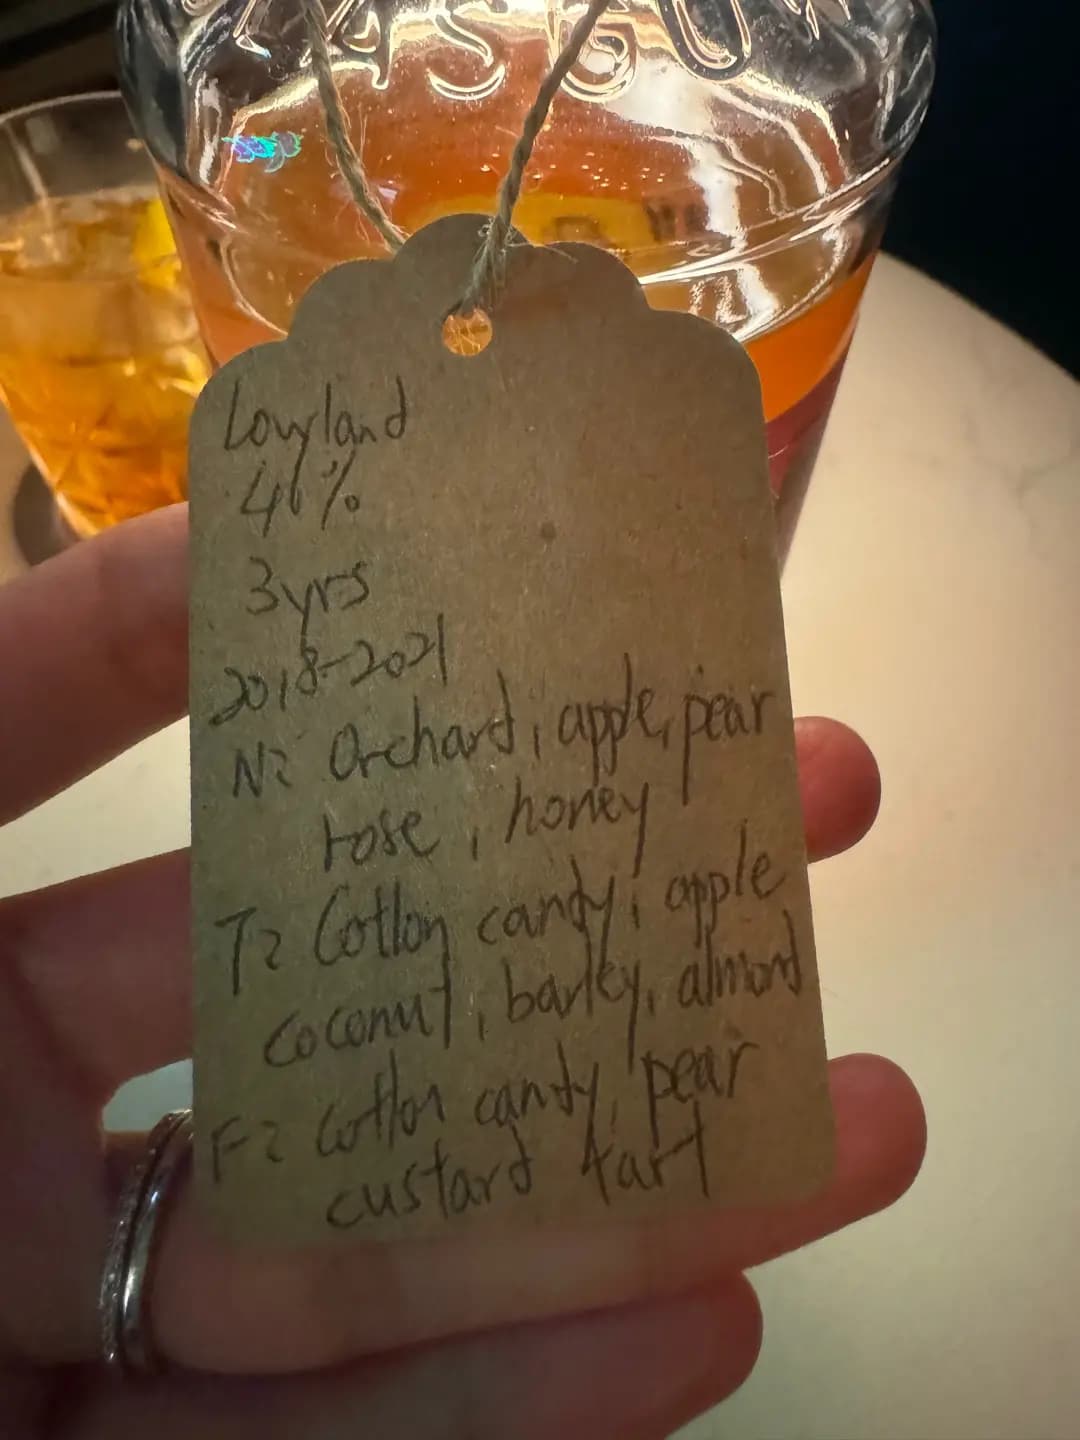 Lowland
46%
3yrs
2018-2021
N: Orchard, apple, pear
rose, honey
T: Cotton candy, apple
coconut, barley, almond
F: Cotton candy, pear
custard tart